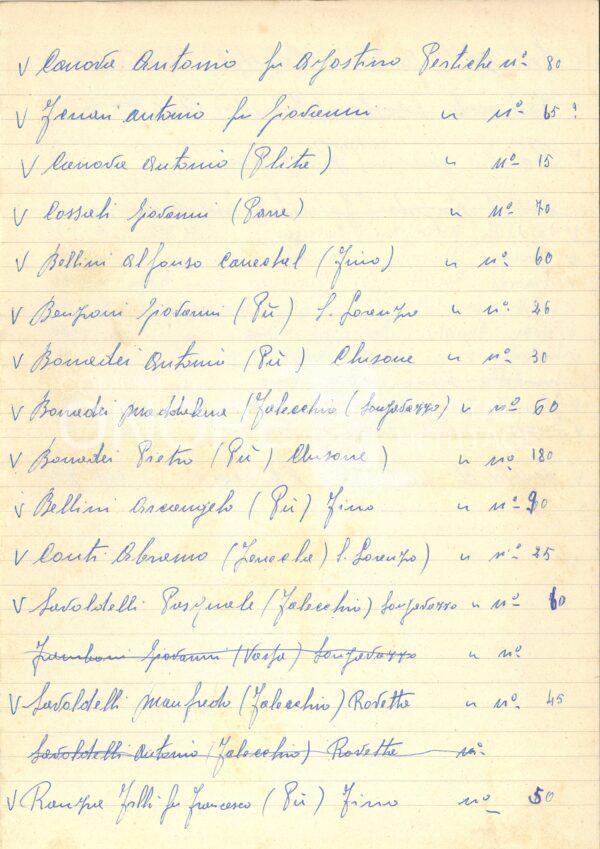 V Canova Antonio fu Agostino Pertiche nº 80
V Ferrari Antonio fu Giovanni " nº 65 ?
V Canova Antonio (Plite) " nº 15
V Cossali Giovanni (Parre) " nº 70
V Bellini Alfonso (Fino) " nº 60
V Benzoni Giovanni (Più) S. Lorenzo " nº 26
V Bonadei Antonio (Più) Clusone " nº 30
V Bonadei Maddalena (Falecchio (Songavazzo) " nº 60
V Bonadei Pietro (Più) Clusone) " nº 180
V Bellini Arcangelo (Più) Fino " nº
V Conti Abramo (Zenecla) S. Lorenzo) " nº 25
V Savoldelli Pasquale (Falecchio) Songavazzo " nº 60
Zamboni Giovanni (Songavazzo " nº
V Savoldelli Manfredo (Falecchio) Rovetta " nº 45
Savoldelli Antonio (Falecchio) Rovetta nº
V Ranza F.lli fu Francesco (Più) Fino nº 50